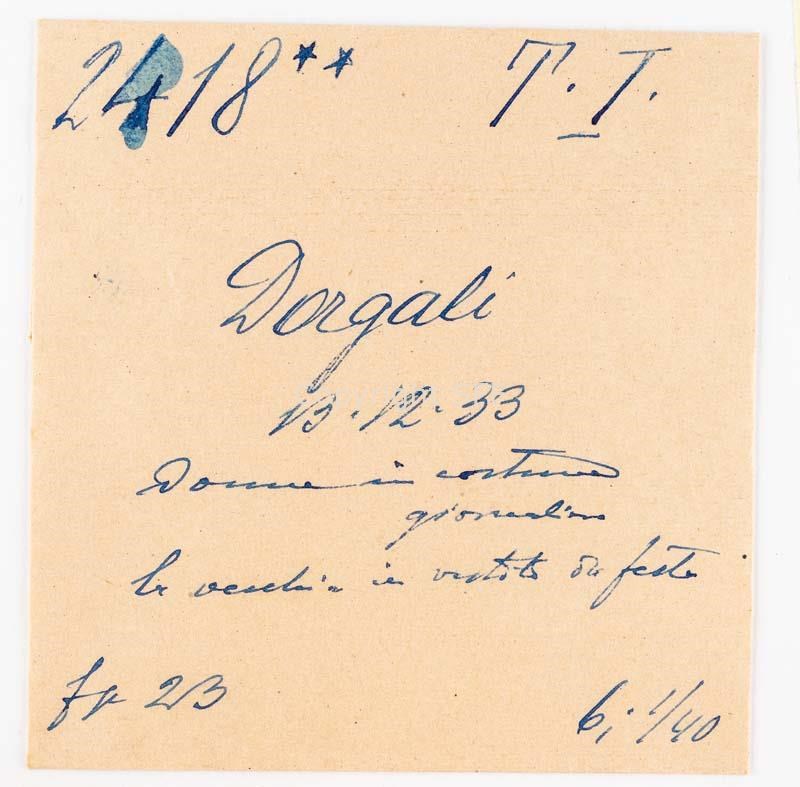 2418** T. I.
Dorgali
13.12.33
Donne in costume
giornaliero
la vecchia in vestito da festa
fp 23
6; 1/40